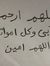 اللهم ارحم
بي وكل اموا
اللهم امين